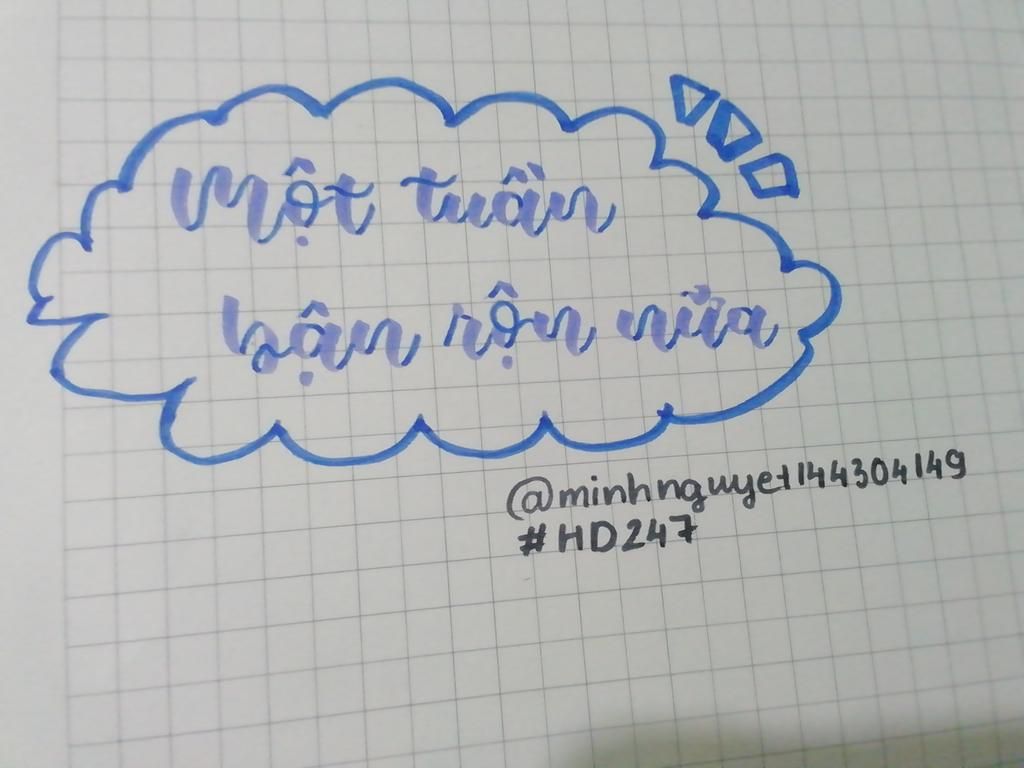 Một tuần
bận rộn nữa
@minhnguyet144304149
#HD247